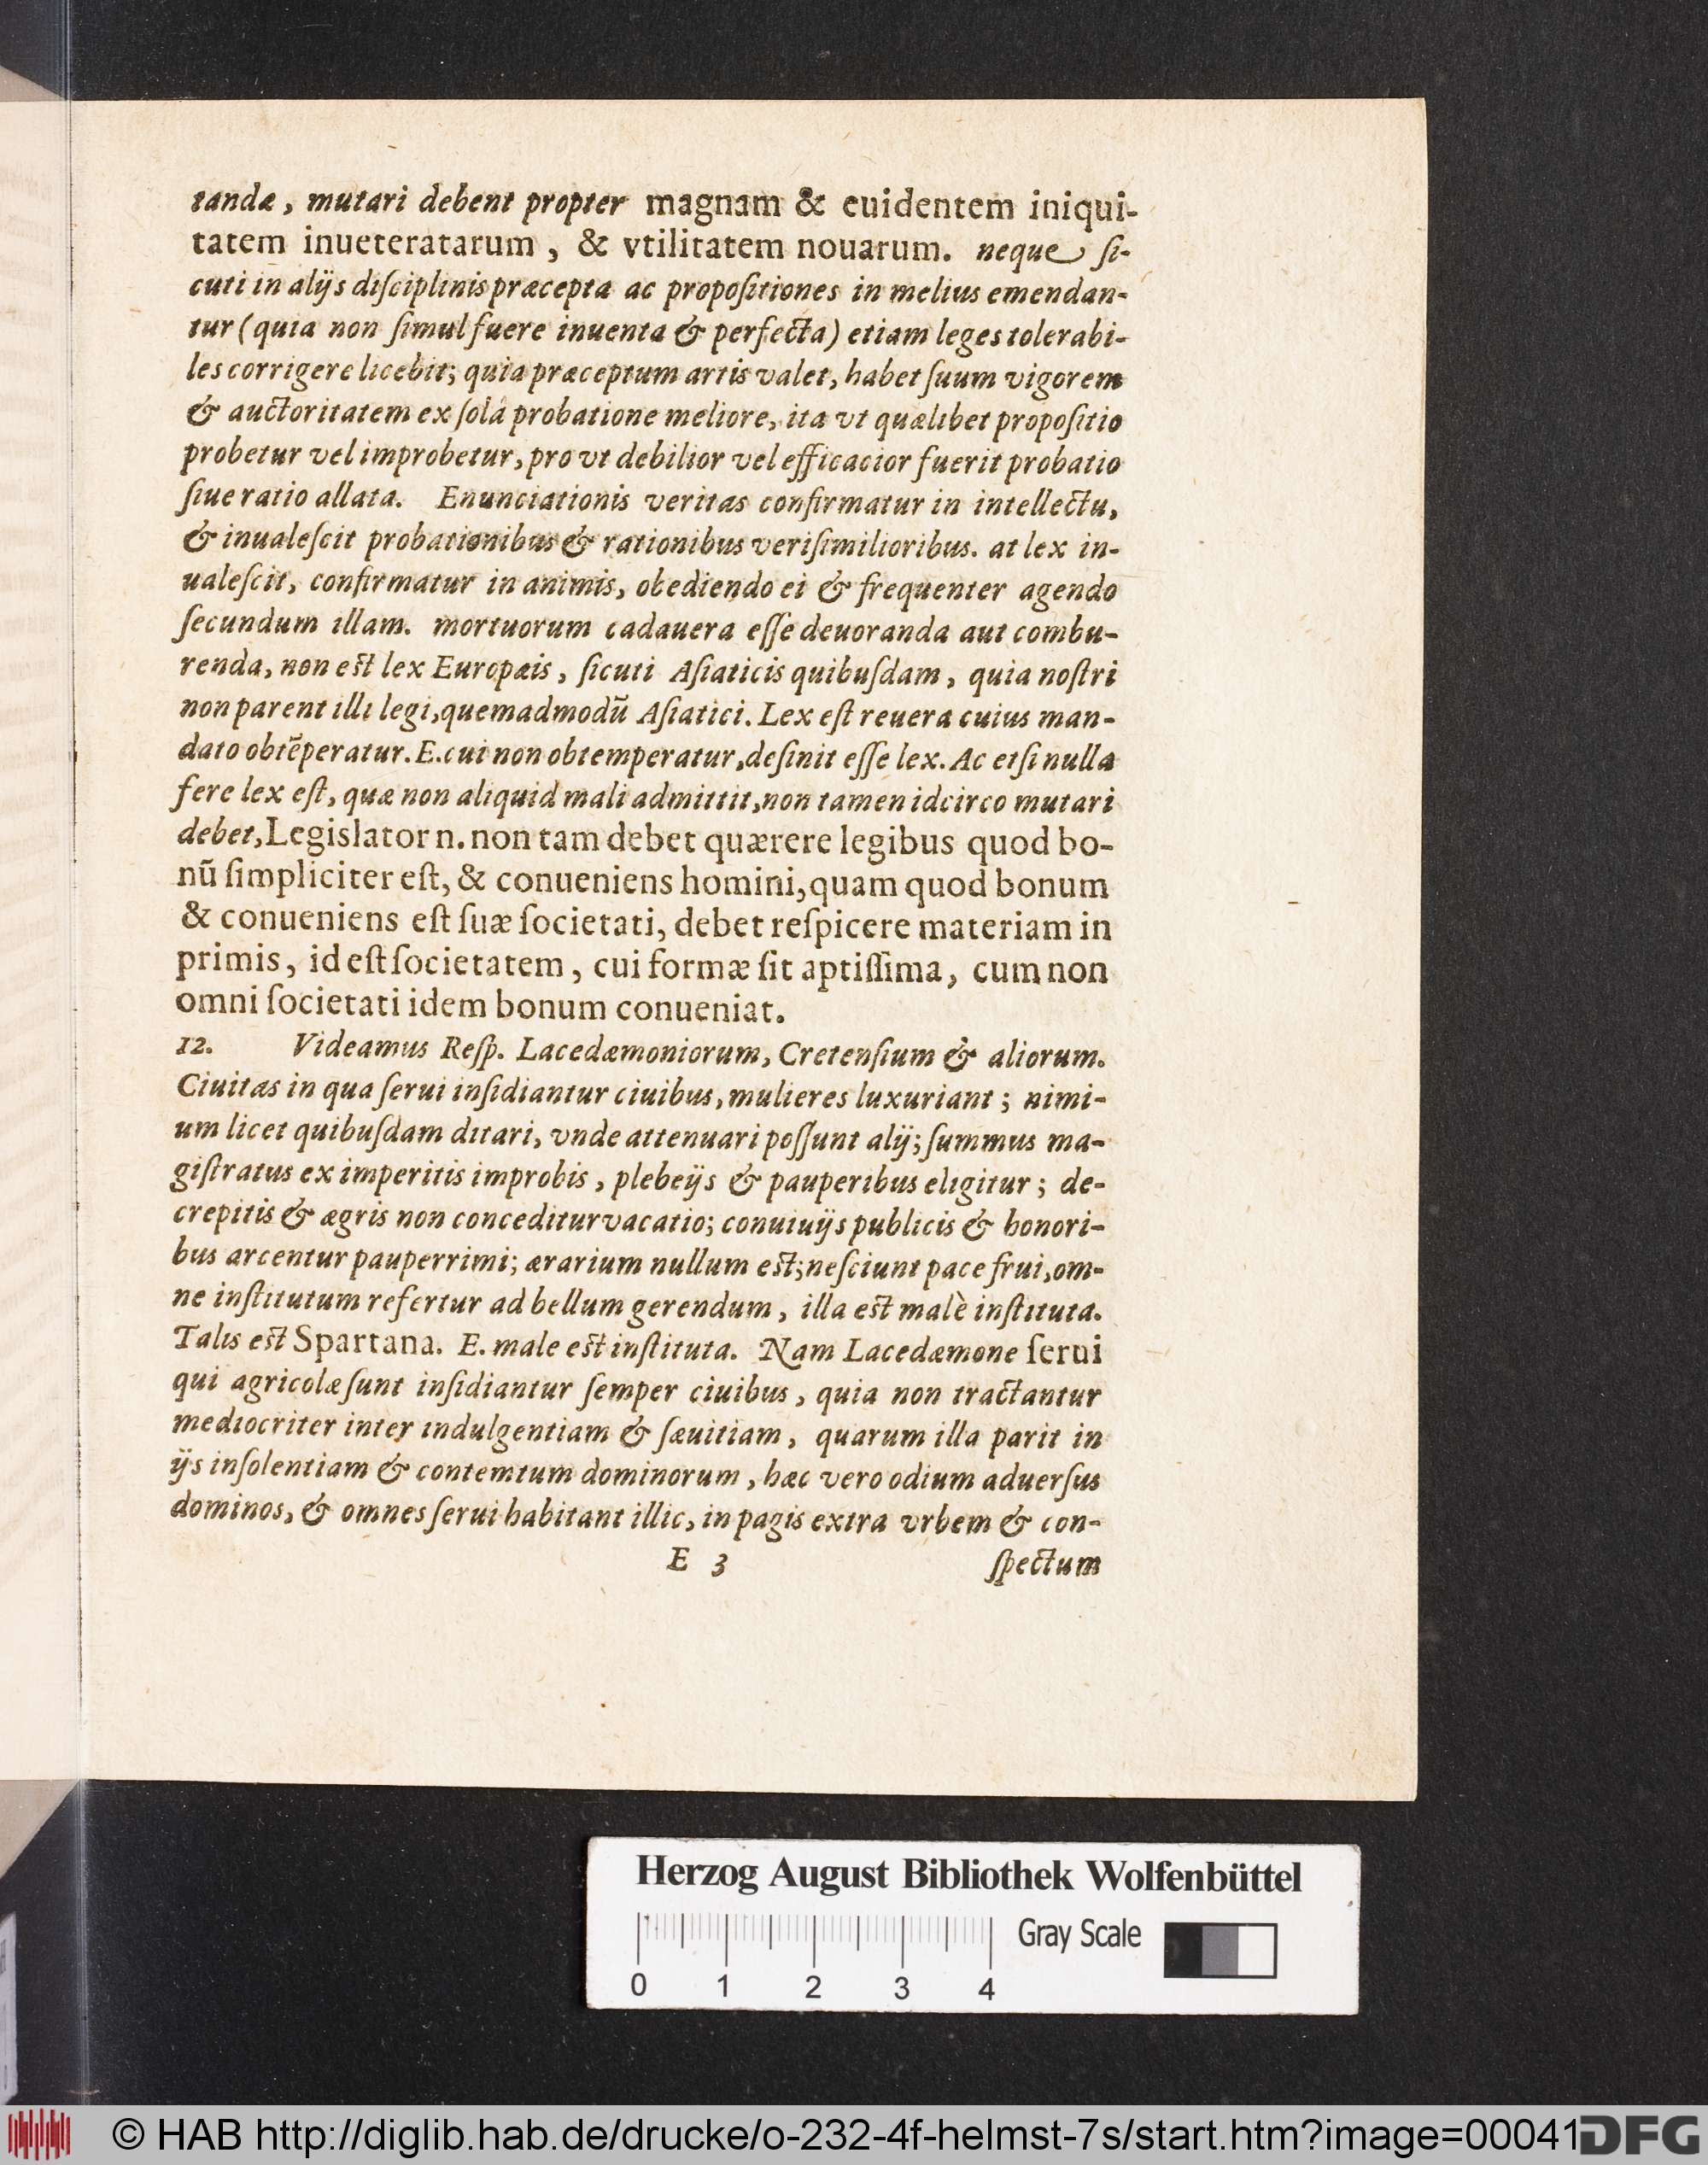 tandæ, mutari debent propter magnam & euidentem iniqui-
tatem inueteratarum, & vtilitatem nouarum. neque ſi-
cuti in alijs diſciplinis præcepta ac propoſitiones in melius emendan-
tur (quia non ſimul fuere inuenta & perfecta) etiam leges tolerabi-
les corrigere licebit; quia præceptum artis valet, habet ſuum vigorem
& auctoritatem ex ſolâ probatione meliore, ita vt quælibet propoſitio
probetur vel improbetur, pro vt debilior vel efficacior fuerit probatio
ſiue ratio allata. Enunciationis veritas confirmatur in intellectu,
& inualeſcit probationibus & rationibus veriſimilioribus. at lex in-
ualeſcit, confirmatur in animis, obediendo ei & frequenter agendo
ſecundum illam. mortuorum cadauera eſſe deuoranda aut combu-
renda, non eſt lex Europæis, ſicuti Aſiaticis quibuſdam, quia noſtri
non parent illi legi, quemadmodũ Aſiatici. Lex eſt reuera cuius man-
dato obtẽperatur. E. cui non obtemperatur, deſinit eſſe lex. Ac etſi nulla
fere lex eſt, quæ non aliquid mali admittit, non tamen idcirco mutari
debet, Legislator n. non tam debet quærere legibus quod bo-
nũ ſimpliciter eſt, & conueniens homini, quam quod bonum
& conueniens eſt ſuæ ſocietati, debet reſpicere materiam in
primis, id eſt ſocietatem, cui formæ ſit aptiſſima, cum non
omni ſocietati idem bonum conueniat.
12. Videamus Reſp. Lacedæmoniorum, Cretenſium & aliorum.
Ciuitas in qua ſerui inſidiantur ciuibus, mulieres luxuriant; nimi-
um licet quibuſdam ditari, vnde attenuari poſſunt alij; ſummus ma-
giſtratus ex imperitis improbis, plebeijs & pauperibus eligitur; de-
crepitis & ægris non conceditur vacatio; conuiuijs publicis & honori-
bus arcentur pauperrimi; ærarium nullum eſt; neſciunt pace frui, om-
ne inſtitutum refertur ad bellum gerendum, illa eſt malè inſtituta.
Talis eſt Spartana. E. male eſt inſtituta. Nam Lacedæmone ſerui
qui agricolæ ſunt inſidiantur ſemper ciuibus, quia non tractantur
mediocriter inter indulgentiam & ſæuitiam, quarum illa parit in
ijs inſolentiam & contemtum dominorum, hæc vero odium aduerſus
dominos, & omnes ſerui habitant illic, in pagis extra vrbem & con-
E 3 ſpectum
Herzog August Bibliothek Wolfenbüttel
0 1 2 3 4 Gray Scale
© HAB http://diglib.hab.de/drucke/o-232-4f-helmst-7s/start.htm?image=00041 DFG